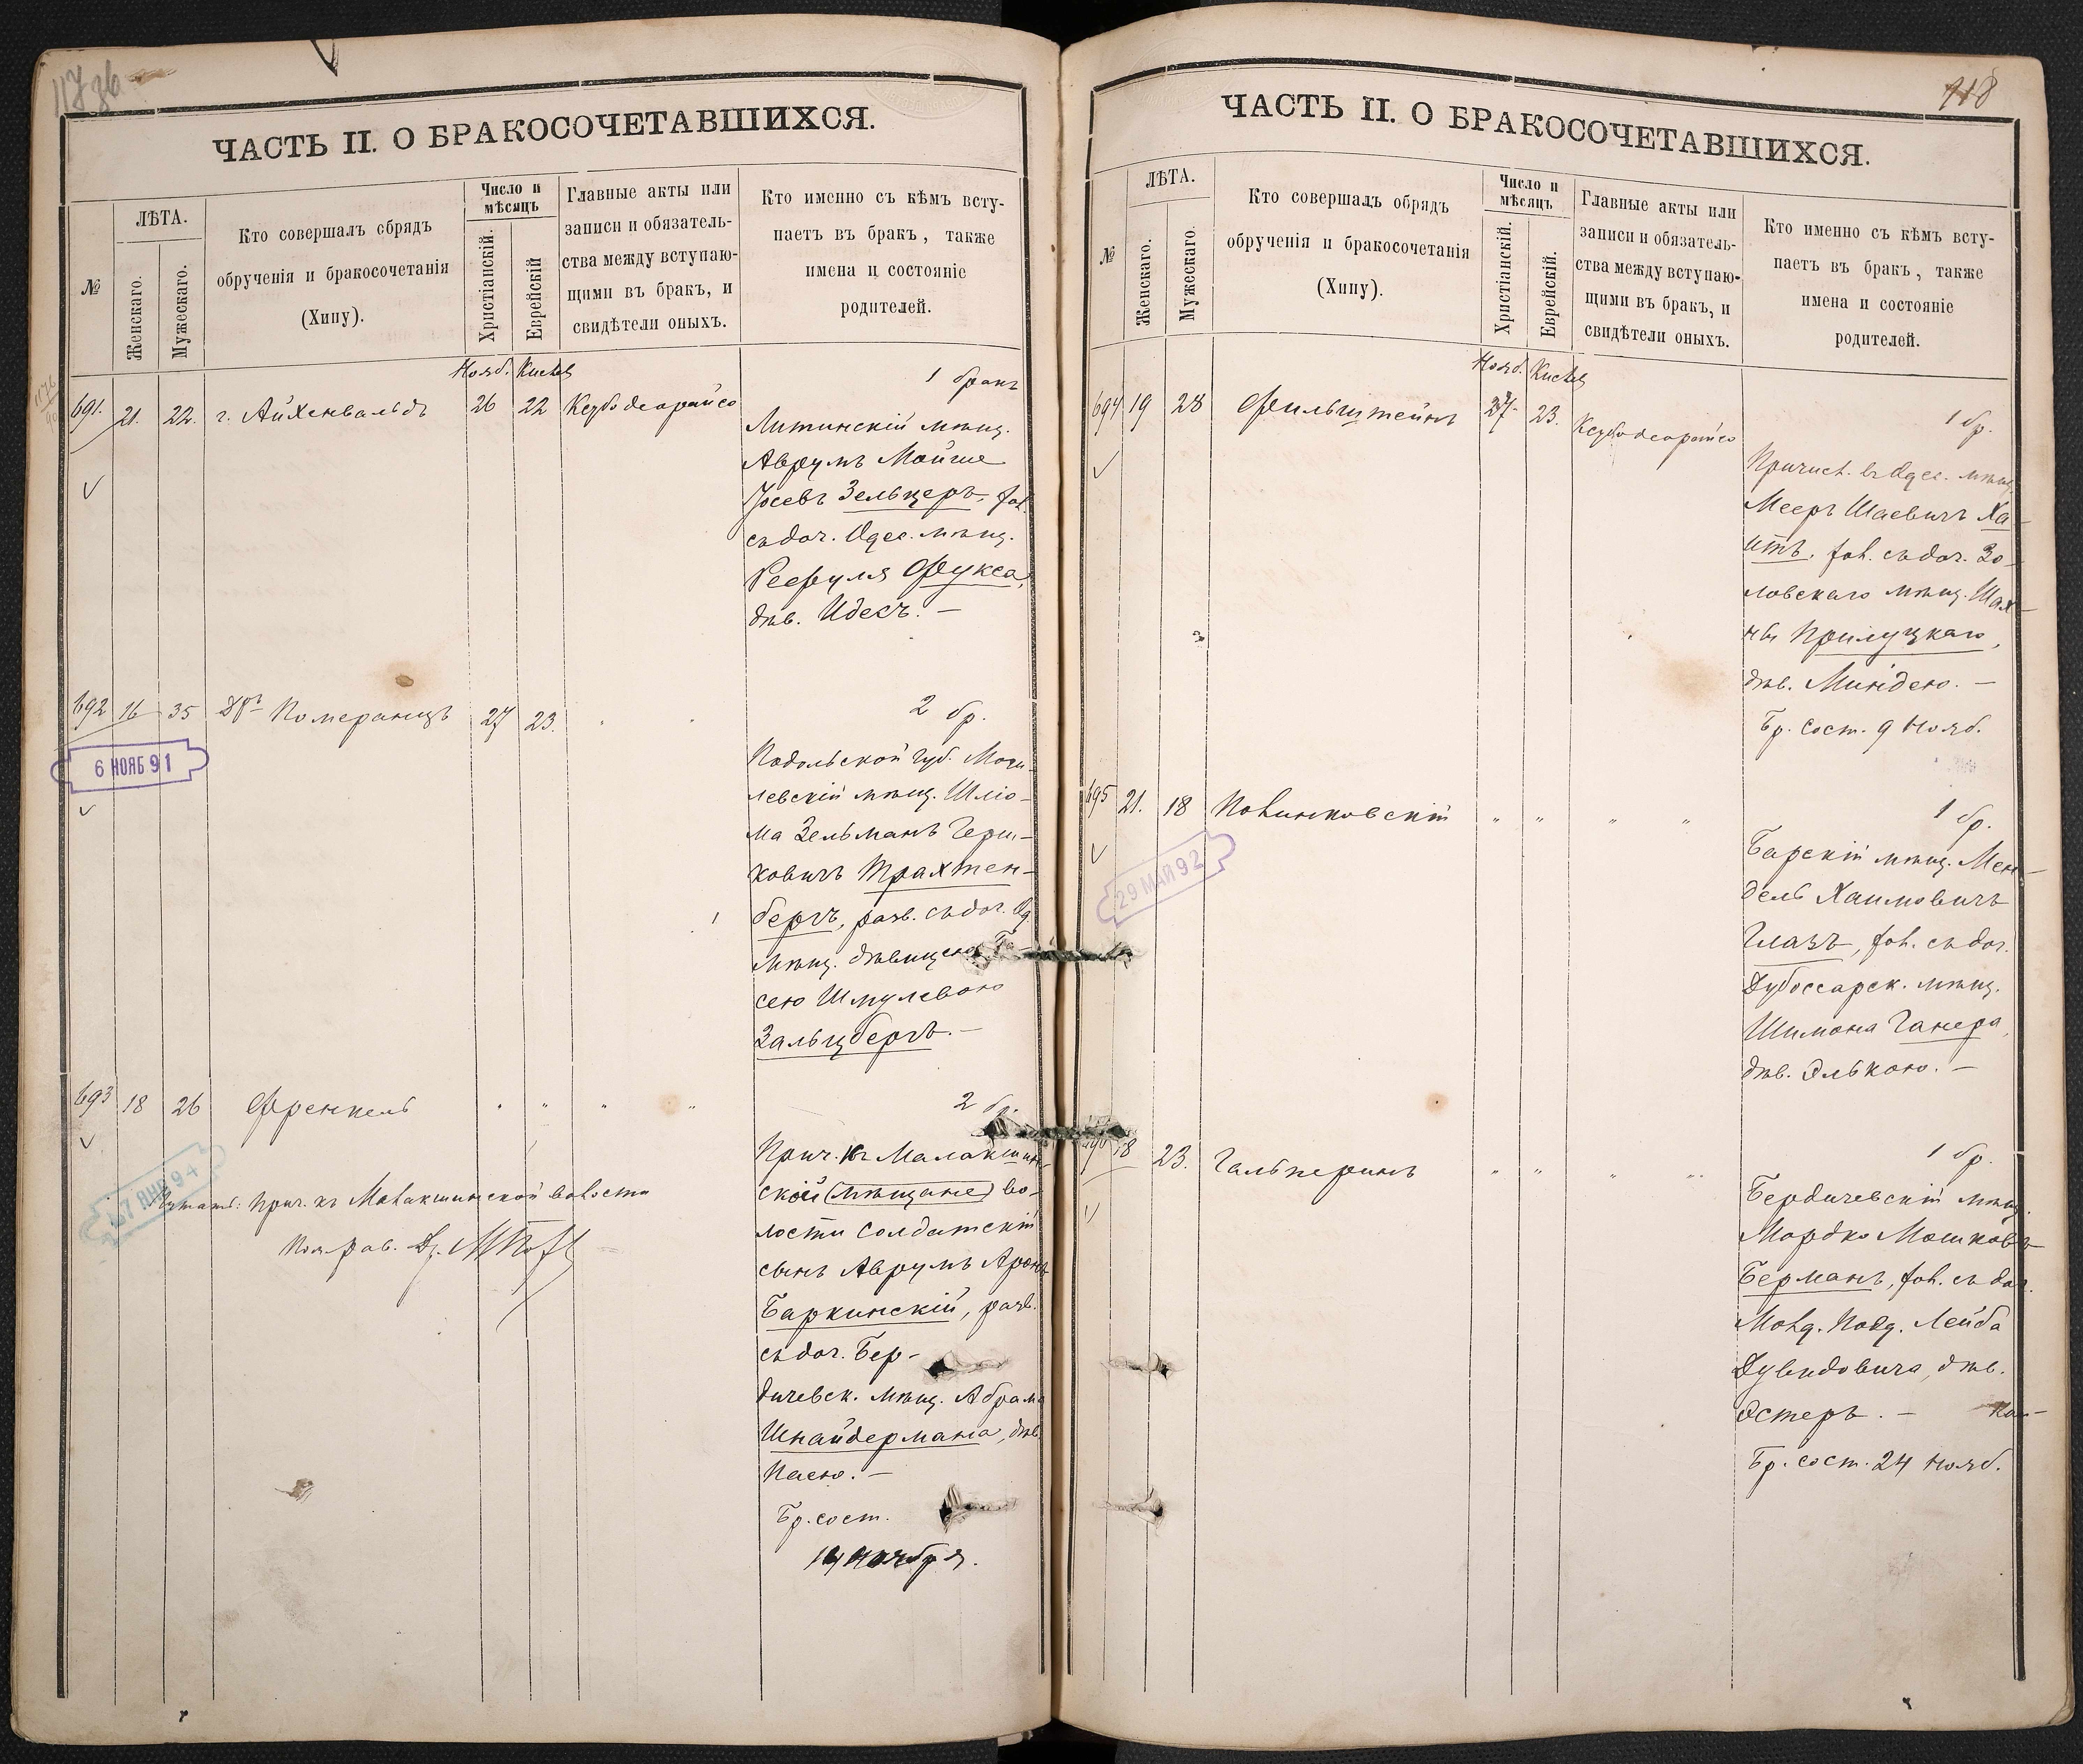 117 об
ЧАСТЬ II. О БРАКОСОЧЕТАВШИХСЯ.
№
ЛѢТА.
Женскаго.
Мужескаго.
Кто совершалъ обрядъ
обрученія и бракосочетанія
(Хипу).
Число и
мѣсяцъ
Христіанскій.
Еврейскій
Главные акты или
записи и обязатель-
ства между вступаю-
щими въ бракъ, и
свидѣтели оныхъ.
Кто именно съ кѣмъ всту-
паетъ въ бракъ, также
имена и состояніе
родителей.
Нояб. Кислев
1 бракъ
691. 21. 22. г. Айхенвальдъ 26 22
Литинскій мѣщ.
Аврумъ Мойше
Іосевъ Зельцеръ, хол.
съ доч. Одес. мѣщ.
Рефуля Фукса,
дѣв. Идесъ. —
692 16 35 Дръ Померанцъ 27 23.
2 бр.
6 НОЯБ 91
Подольской губ. Моги-
левскій мѣщ. Шліо-
ма Зельманъ Герш-
ковичъ Трахтен-
бергъ, разв. съ доч. Од.
мѣщ. дѣвицею
сею Шмулевою
Зальцбергъ. —
693 18 26 Френкель " " " "
2 бр.
Прич. къ Малакшин-
ской (мѣщане) во-
лости солдатскій
сынъ Аврумъ Аронъ
Баркинскій, разв.
съ доч. Бер-
дичевск. мѣщ. Абрама
Шнайдермана, дѣв.
Пасею. —
Бр. сост.
14 ноября.
27 ЯНВ 94
Читать: прич. къ Малакшинской волости
118
ЧАСТЬ II. О БРАКОСОЧЕТАВШИХСЯ.
№
ЛѢТА.
Женскаго.
Мужескаго.
Кто совершалъ обрядъ
обрученія и бракосочетанія
(Хипу).
Число и
мѣсяцъ
Христіанскій.
Еврейскій.
Главные акты или
записи и обязатель-
ства между вступаю-
щими въ бракъ, и
свидѣтели оныхъ.
Кто именно съ кѣмъ всту-
паетъ въ бракъ, также
имена и состояніе
родителей.
Нояб. Кислев
694 19 28 Фильштейнъ 27 23.
1 бр.
Причисл. въ Одес. мѣщ.
Мееръ Шаевичъ Ха-
итъ, хол. съ доч. Зо-
ловскаго мѣщ. Шах-
ны Прилуцкаго,
дѣв. Миндею. —
Бр. сост. 9 нояб.
695 21. 18 Полинковскій " " " "
1 бр.
29 МАЙ 92
Барскій мѣщ. Мен-
дель Хаимовичъ
Глазъ, хол. съ доч.
Дубоссарск. мѣщ.
Шимона Ганера,
дѣв. Элькою. —
696 18 23. Гальперинъ " " " "
1 бр.
Бердичевскій мѣщ.
Мордко Мошковъ
Берманъ, хол. съ доч.
Молд. Подд. Лейба
Дувидовича, дѣв.
Эстеръ. —
Бр. сост. 24 нояб.